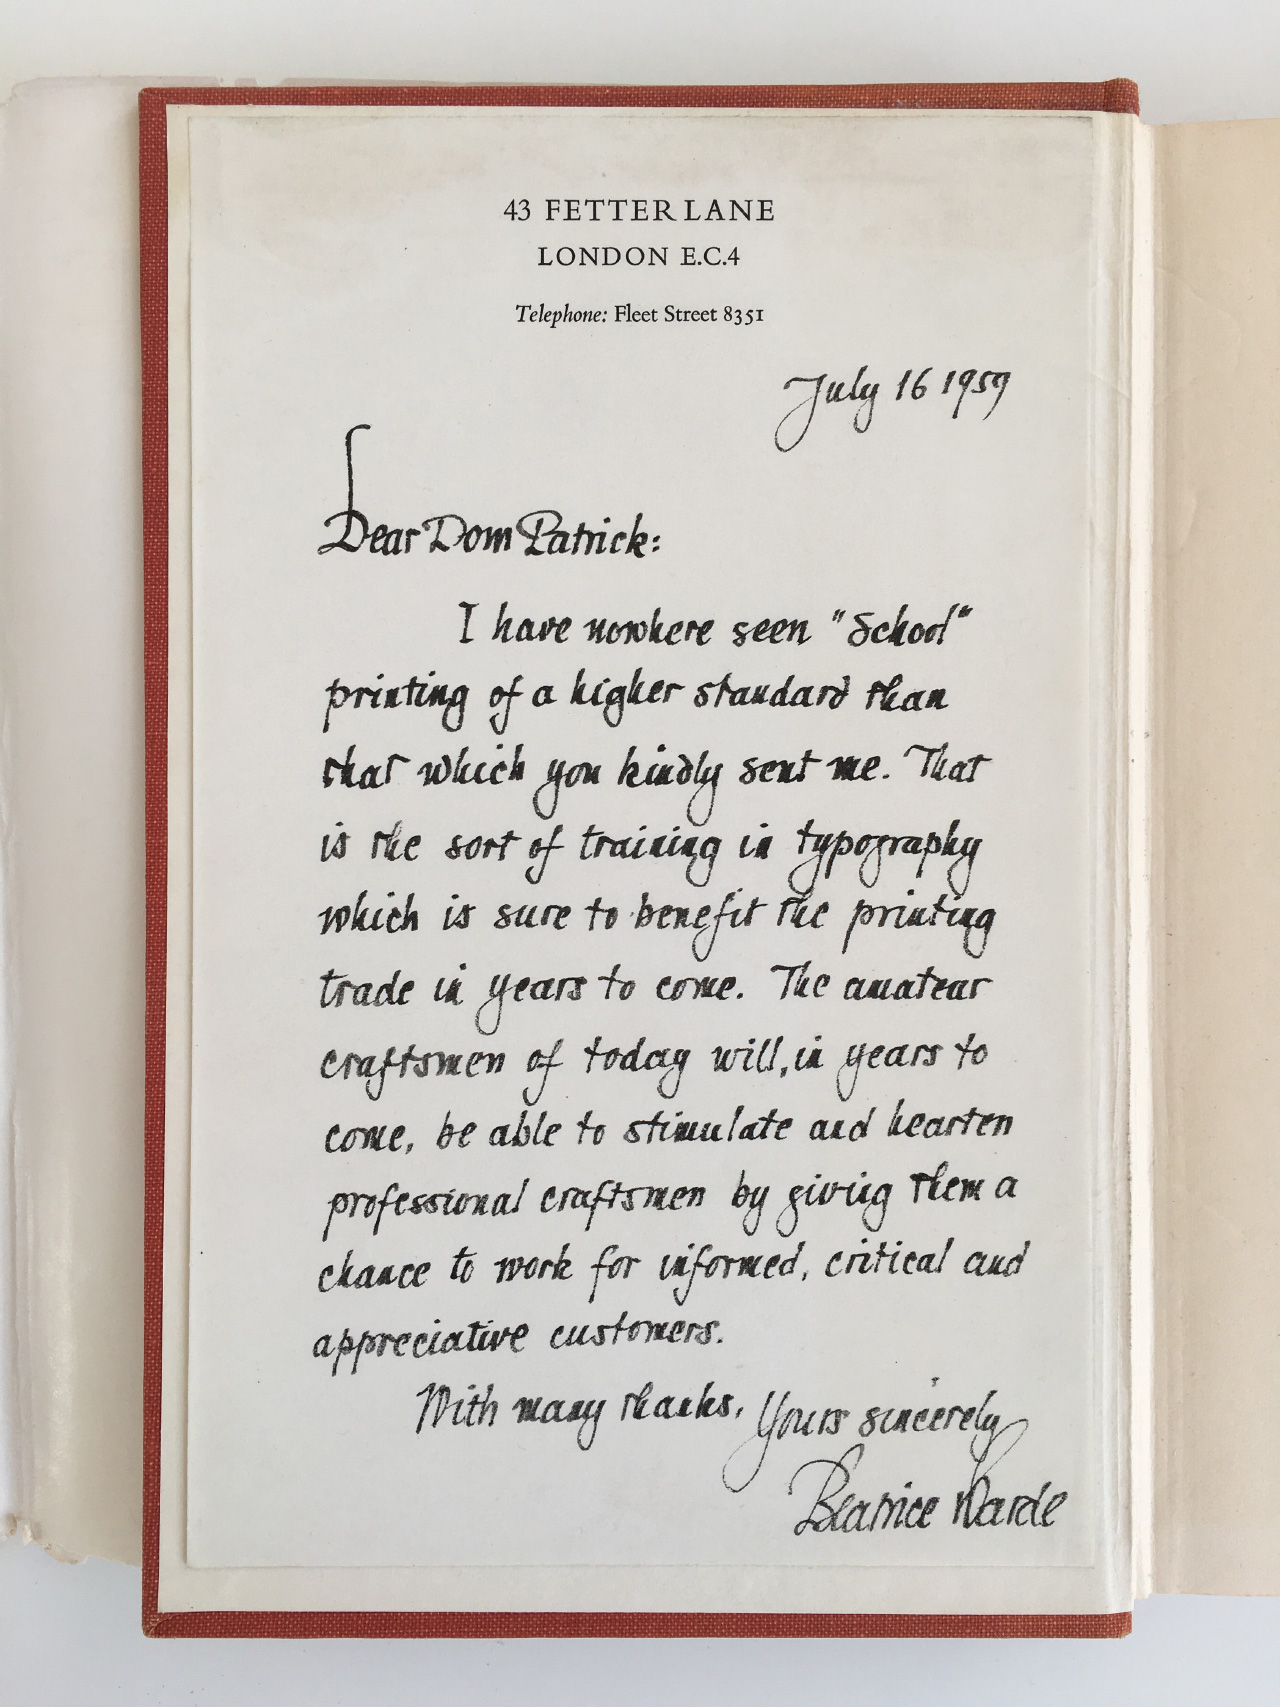 43 FETTER LANE
LONDON E.C.4
Telephone: Fleet Street 8351
July 16 1959
Dear Dom Patrick:
I have nowhere seen "School"
printing of a higher standard than
that which you kindly sent me. That
is the sort of training in typography
which is sure to benefit the printing
trade in years to come. The amatear
craftsmen of today will, in years to
come, be able to stimulate and hearten
professional craftsmen by giving them a
chance to work for informed, critical and
appreciative customers.
With many thanks, Yours sincerely
Beatrice Warde